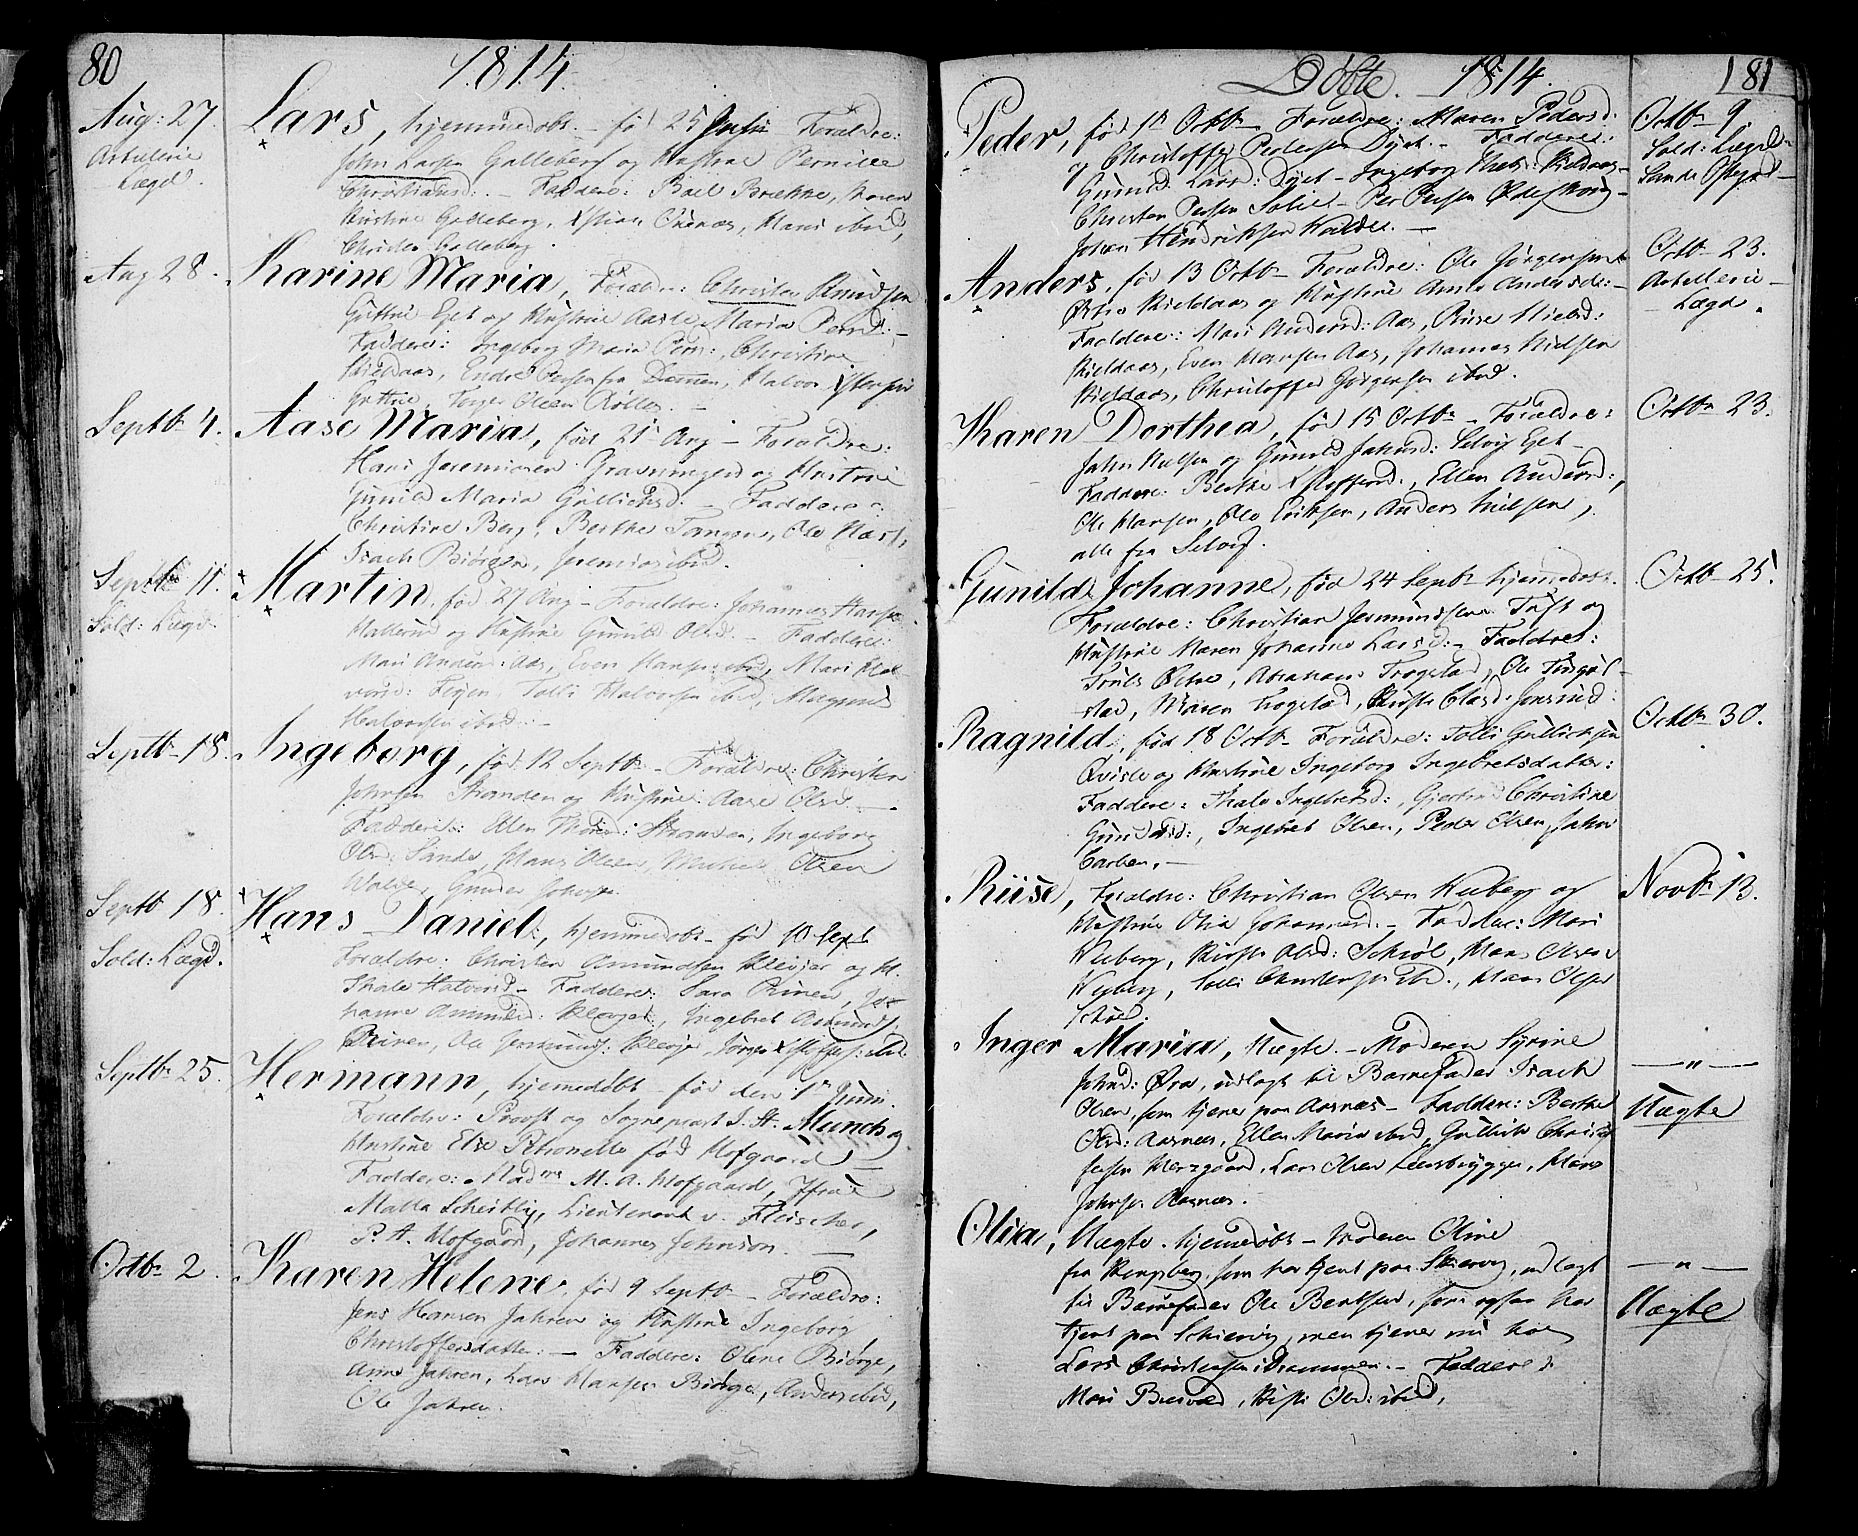 80
1814.
Aug: 27.
Artillerie
Lægd.
Lars, hjemmedøbt – født 25 Julii Forældre:
John Larsen Galleberg og Hustrue Pernille
Christiansd: – Faddere: Boel Brekke, Maren
Kirstine Galleberg, Hans ibid,
Christen Galleberg.
Aug 28.
Karine Maria, Forældre: Christen Knudsen
Guttrie Eyet og Hustrue Aasle Maria Persd: –
Faddere: Ingeborg Maria Persd:, Christine
Kieldaas, Endre Persen fra Drammen, Halvor
Guttrie, Torger Olsen Rølles. –
Septbr 4.
Aase Maria, født 21 Aug – Forældre:
Hans Jeremiasen Gravningen og Hustrue
Gunild Maria Gullichsd. – Faddere:
Christine Berg, Berthe Tangen, Ole Næss,
Isach Biørgen, Jeremias ibid.
Septbr 11.
Sold: Lægd.
Martin, fød 27 Aug – Forældre: Johannes Hansen
Hallerud og Hustrue Gunild Olsd. – Faddere:
Mari Andersd: Aas, Even Hansen ibid, Mari Hal-
vorsd: Teien, Tolli Halvorsen ibid, Magnus
Halvorsen ibid. –
Septbr 18.
Ingeborg, fød 12 Septbr – Forældre: Christen
Johnsen Stranden og Hustrue Aase Olsd –
Faddere: Elen Thorsd: Stranden, Ingeborg
Olsd: Sande, Hans Olsen, Michel Olsen
Walde, Gunder Johnsen.
Septbr 18.
Sold: Lægd.
Hans Daniel, hjemmedøbt – fød 10 Sept
Forældre: Christen Amundsen Klevjer og H.
Thale Halvorsd – Faddere: Sara Riven, Jo-
hanne Amundsd: Klevjer, Ingebret Amunds.
Riven, Ole Jensmunds: Klevje, Jørgen ibid.
Septbr 25.
Hermann, hjemedøbt – fød den 1ste Juni.
Forældre: Provst og Sognepræst J. St. Munch og
Hustrue Else Petronelle fød Hofgaard –
Faddere: Madme M. A. Hofgaard, Jfrue
Malla Scheitlin, Lieutenant v. Fleischer,
P. A. Hofgaard, Johannes Johnson. –
Octbr 2.
Karen Helene, fød 9 Septbr – Forældre:
Jens Hansen Jahren og Hustrue Ingeborg
Christoffersdatter: – Faddere: Olene Biørge,
Anne Jahren, Lars Hansen Biørge, Anders ibid,
Ole Jahren.
Døbte. 1814.
181
Peder, fød 1st Octbr – Forældre: Maren Pedersd:
og Christoffer Pedersen Dyet. – Faddere:
Gunild Larsd: Dyet – Ingeborg Elset: Kieldaas –
Christen Persen Solset – Per Persen Ødeskoug –
Johan Hendriksen Kalder. –
Octbr 9.
Sold: Lægd –
Sande Østgrd –
Anders, fød 13 Octbr – Forældre: Ole Jørgensen
Østre Kieldaas og Hustrue Anne Andersdr: –
Faddere: Mari Andersd: Aas, Riise Nielsd:
Kieldaas, Even Hansen Aas, Johannes Nielsen
Kieldaas, Christoffer Jørgensen ibid.
Octbr 23.
Artellerie –
Lægd.
Karen Dorthea, fød 15 Octbr – Forældre:
John Nielsen og Gunild Jahnsd: Selvig Eyet –
Faddere: Berthe Xstoffersd., Ellen Andersd:,
Ole Hansen, Ole Eriksen, Anders Nielsen,
alle fra Selvig.
Octbr 23.
Gunilde Johanne, fød 24 Septbr hjemedøbt.
Forældre: Christian Jensmundsen Tuft og
Hustrue Maren Johanne Larsd: – Faddere:
Truls Østre, Abraham Trogstad, Ole Trog-
stad, Maren Trogstad, Kirsti Clasd: Jonsrud.
Octbr 25.
Ragnild, fød 18 Octbr – Forældre: Tolli Gullichsen
Qvisle og Hustrue Ingeborg Ingebretsdatter:
Faddere: Thale Ingebretsd:, Christine
Ingebret Olsen, Peder Olsen, Jahn
Carlsen. –
Octbr 30.
Riise, Forældre: Christian Olsen Huberg og
Hustrue Olia Johannesd – Faddere: Mari
Huberg, Kirsti Olsd: Schiøl, Hans Olsen
Huberg, Tolli Christensen ibd., Hans Olsen
Schiøl.
Novbr 13.
Inger Maria, Uægte. – Moderen Syrine
Johnsd: Øra, udlagt til Barnefader Isach
Olsen, som tjener paa Aasnæs – Faddere: Berthe
Olsd: Aasnæs, Ellen Maria ibid, Gullich Christof
fersen Herzgaard, Lars Olsen Leersbrygge, Hans
Johnsen Aasnæs. –
— " —
Uægte
Olia, Uægte. hjemedøbt – Moderen Oline
fra Kongsberg, som har tjent paa Skiervig, udlagt
til Barnefader Ole Bentsen, som ogsaa har
tjent paa Schiervig, men tjener nu hos
Lars Christensen i Drammen. – Faddere:
Mari Buevad, Kirsti Olsd: ibid,
— " —
Uægte